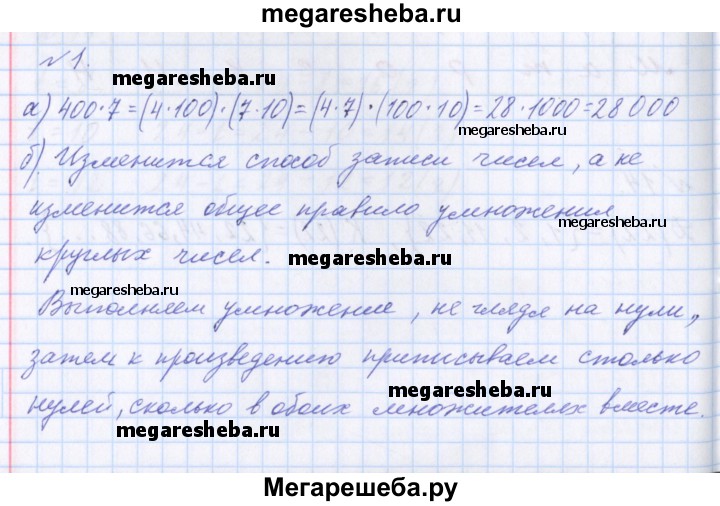 megaresheba.ru
№1.
megaresheba.ru
а) 400·7=(4·100)·(7·10)=(4·7)·(100·10)=28·1000=28 000
megaresheba.ru
б) Изменится способ записи чисел, а не
изменится общее правило умножения
megaresheba.ru
круглых чисел.
megaresheba.ru
megaresheba.ru
Выполняем умножение, не глядя на нули,
затем к произведению приписываем столько
megaresheba.ru
нулей, сколько в обоих множителях вместе.
megaresheba.ru
Мегарешеба.ру